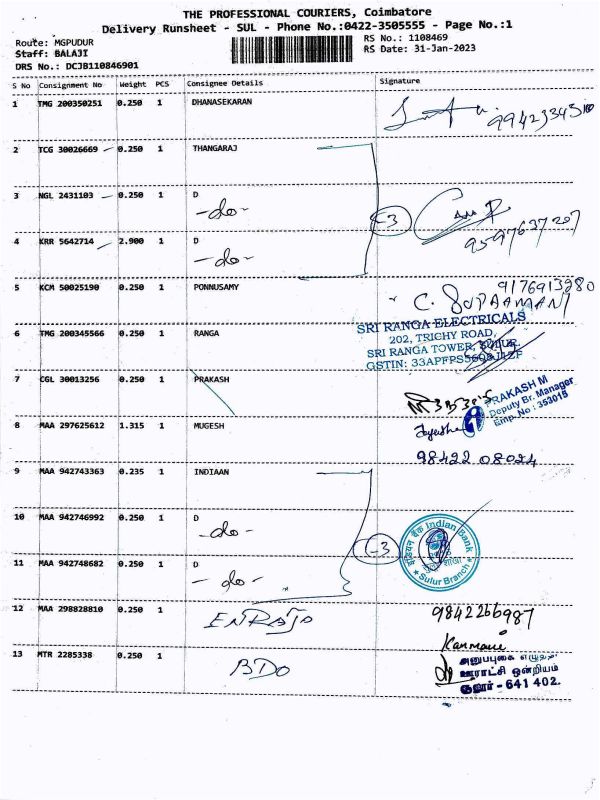 THE PROFESSIONAL COURIERS, Coimbatore
Delivery Runsheet - SUL - Phone No.:0422-3505555 - Page No.:1
Route: MGPUDUR
RS No.: 1108469
Staff: BALAJI
RS Date: 31-Jan-2023
DRS No.: DCJB110846901
S No Consignment No Weight PCS Consignee Details Signature
1 TMG 200350251 0.250 1 DHANASEKARAN
2 TCG 30026669 0.250 1 THANGARAJ
3 NGL 2431103 0.250 1 D
-do-
-3
9597637207
4 KRR 5642714 2.900 1 D
-do-
5 KCM 50025190 0.250 1 PONNUSAMY
9176913280
SRI RANGA ELECTRICALS
202, TRICHY ROAD,
6 TMG 200345566 0.250 1 RANGA
SRI RANGA TOWER, SULUR.
GSTIN:
7 CGL 30013256 0.250 1 PRAKASH
PRAKASH M
Deputy Br. Manager
Emp. No : 353015
8 MAA 297625612 1.315 1 MUGESH
98422 08024
9 MAA 942743363 0.235 1 INDIAAN
10 MAA 942746992 0.250 1 D
-do-
-3
इंडियन बैंक Indian Bank
Sulur Branch
11 MAA 942748682 0.250 1 D
-do-
12 MAA 298828810 0.250 1
9842266987
13 MTR 2285338 0.250 1 BDO
ஊராட்சி ஒன்றியம்
சூலூர் - 641 402.